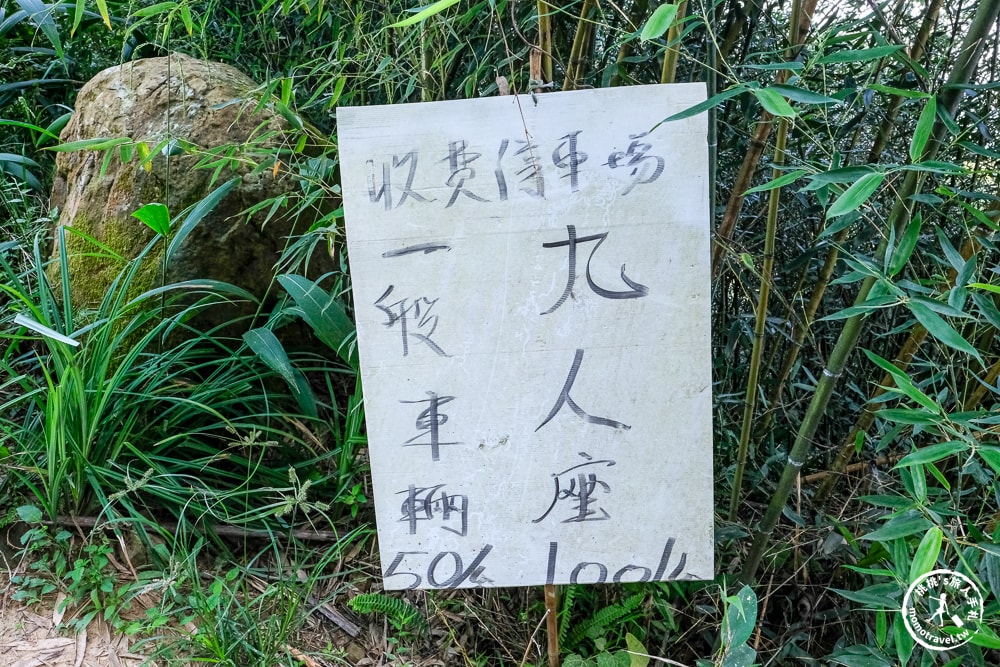 收费停車場
一般車輛 50元
九人座 100元
桃桃's旅人手札
momotravel.tw